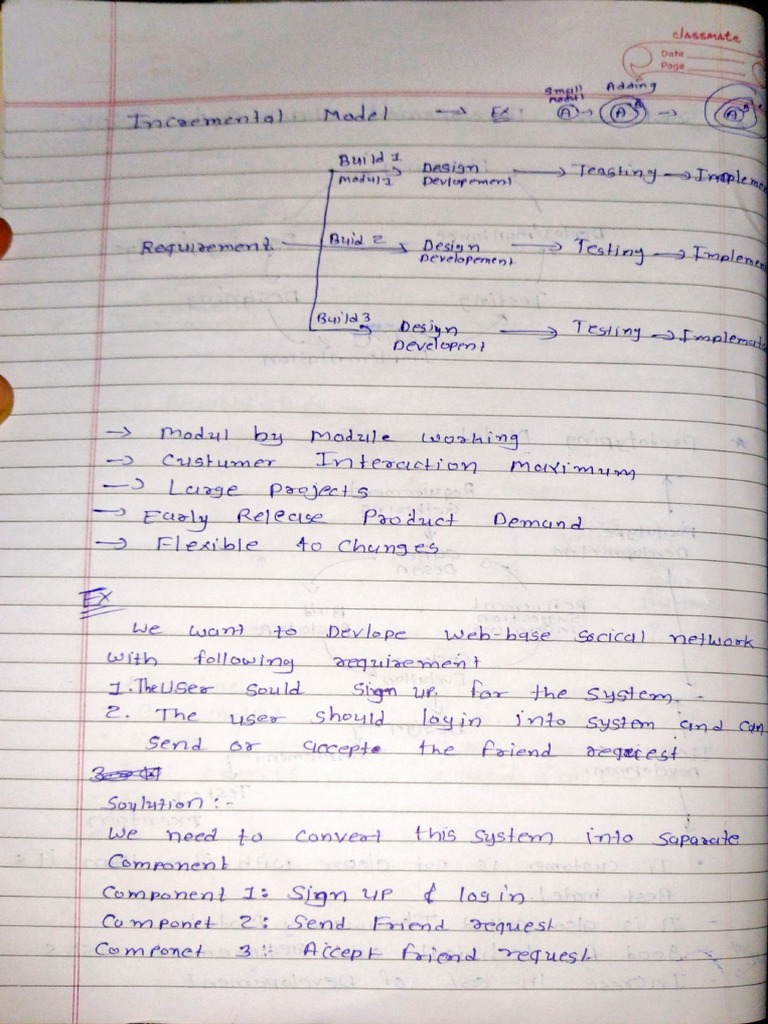 classmate
Date
Page
Incremental Model → Ex Small Modul A → Adding A B → A B
Build 1
Modul-1 Design Devlopement → Teasting → Impleme
Requirement Buid 2 Design Developement → Testing → Implemen
Build 3 Design Developent → Testing → Implemata
→ Modul by module working
→ Custumer Interaction Maximum
→ Large Projects
→ Early Release Product Demand
→ Flexible to changes
Ex
We want to Devlope web-base socical network
with following requirement
1. The User sould Sign up for the System. -
2. The user should login into system and can
send or accepte the friend request
Soylution :-
We need to convert this system into saparate
Component
Component 1: Sign up & login
Componet 2: Send Friend request
Componet 3: Accept friend request